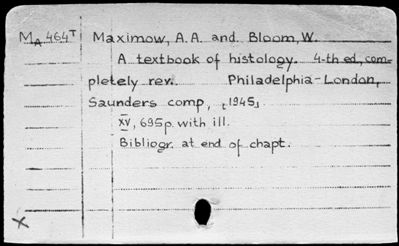 MA 464T Maximow, A.A. and Bloom, W.
A textbook of histology. 4-th ed, com-
pletely rev. Philadelphia-London,
Saunders comp, [1945]
XV, 695p. with ill.
Bibliogr. at end of chapt.